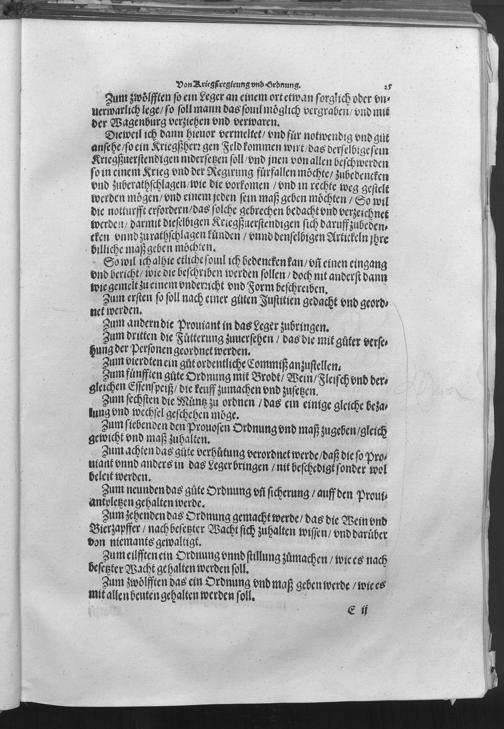 Von Kriegßregierung vnd Ordnung. 25
Zum zwölfften so ein Leger an einem ort etwan sorglich oder vn-
uerwarlich lege / so soll mann das souil möglich vergraben / vnd mit
der Wagenburg verziehen vnd verwaren.
Dieweil ich dann hieuor vermeltet / vnd für notwendig vnd güt
ansehe / so ein Kriegßherr gen Feld kommen wirt / das derselbige sein
Kriegßuerstendigen nidersetzen soll / vnd jnen von allen beschwerden
so in einem Krieg vnd der Regirung fürfallen möchte / zubedencken
vnd zuberathschlagen / wie die vorkomen / vnd in rechte weg gestelt
werden mögen / vnd einem jeden sein maß geben möchten / So wil
die notturfft erfordern / das solche gebrechen bedacht vnd verzeichnet
werden / darmit dieselbigen Kriegßuerstendigen sich daruff zubeden-
cken vnnd zurathschlagen künden / vnnd denselbigen Artickeln jhre
billiche maß geben möchten.
So wil ich alhie etliche souil ich bedencken kan / vñ einen eingang
vnd bericht / wie die beschriben werden sollen / doch nit anderst dann
wie gemelt zu einem vnderricht vnd Form beschreiben.
Zum ersten so soll nach einer güten Justitien gedacht vnd geord-
net werden.
Zum andern die Prouiant in das Leger zubringen.
Zum dritten die Fütterung zuuersehen / das die mit güter verse-
hung der Personen geordnet werden.
Zum vierdten ein güt ordentliche Commiß anzustellen.
Zum fünfften güte Ordnung mit Brodt / Wein / Fleisch vnd der-
gleichen Essenspeiß / die keuff zumachen vnd zusetzen.
Zum sechsten die Müntz zu ordnen / das ein einige gleiche beza-
lung vnd wechsel geschehen möge.
Zum siebenden den Prouosen Ordnung vnd maß zugeben / gleich
gewicht vnd maß zuhalten.
Zum achten das güte verhütung verordnet werde / daß die so Pro-
uiant vnnd anders in das Leger bringen / nit beschedigt sonder wol
beleit werden.
Zum neunden das güte Ordnung vñ sicherung / auff den Proui-
antpletzen gehalten werde.
Zum zehenden das Ordnung gemacht werde / das die Wein vnd
Bierzapffer / nach besetzter Wacht sich zuhalten wissen / vnd darüber
von niemants gewaltigt.
Zum eilfften ein Ordnung vnnd stillung zümachen / wie es nach
besetzter Wacht gehalten werden soll.
Zum zwölfften das ein Ordnung vnd maß geben werde / wie es
mit allen beuten gehalten werden soll.
E ij